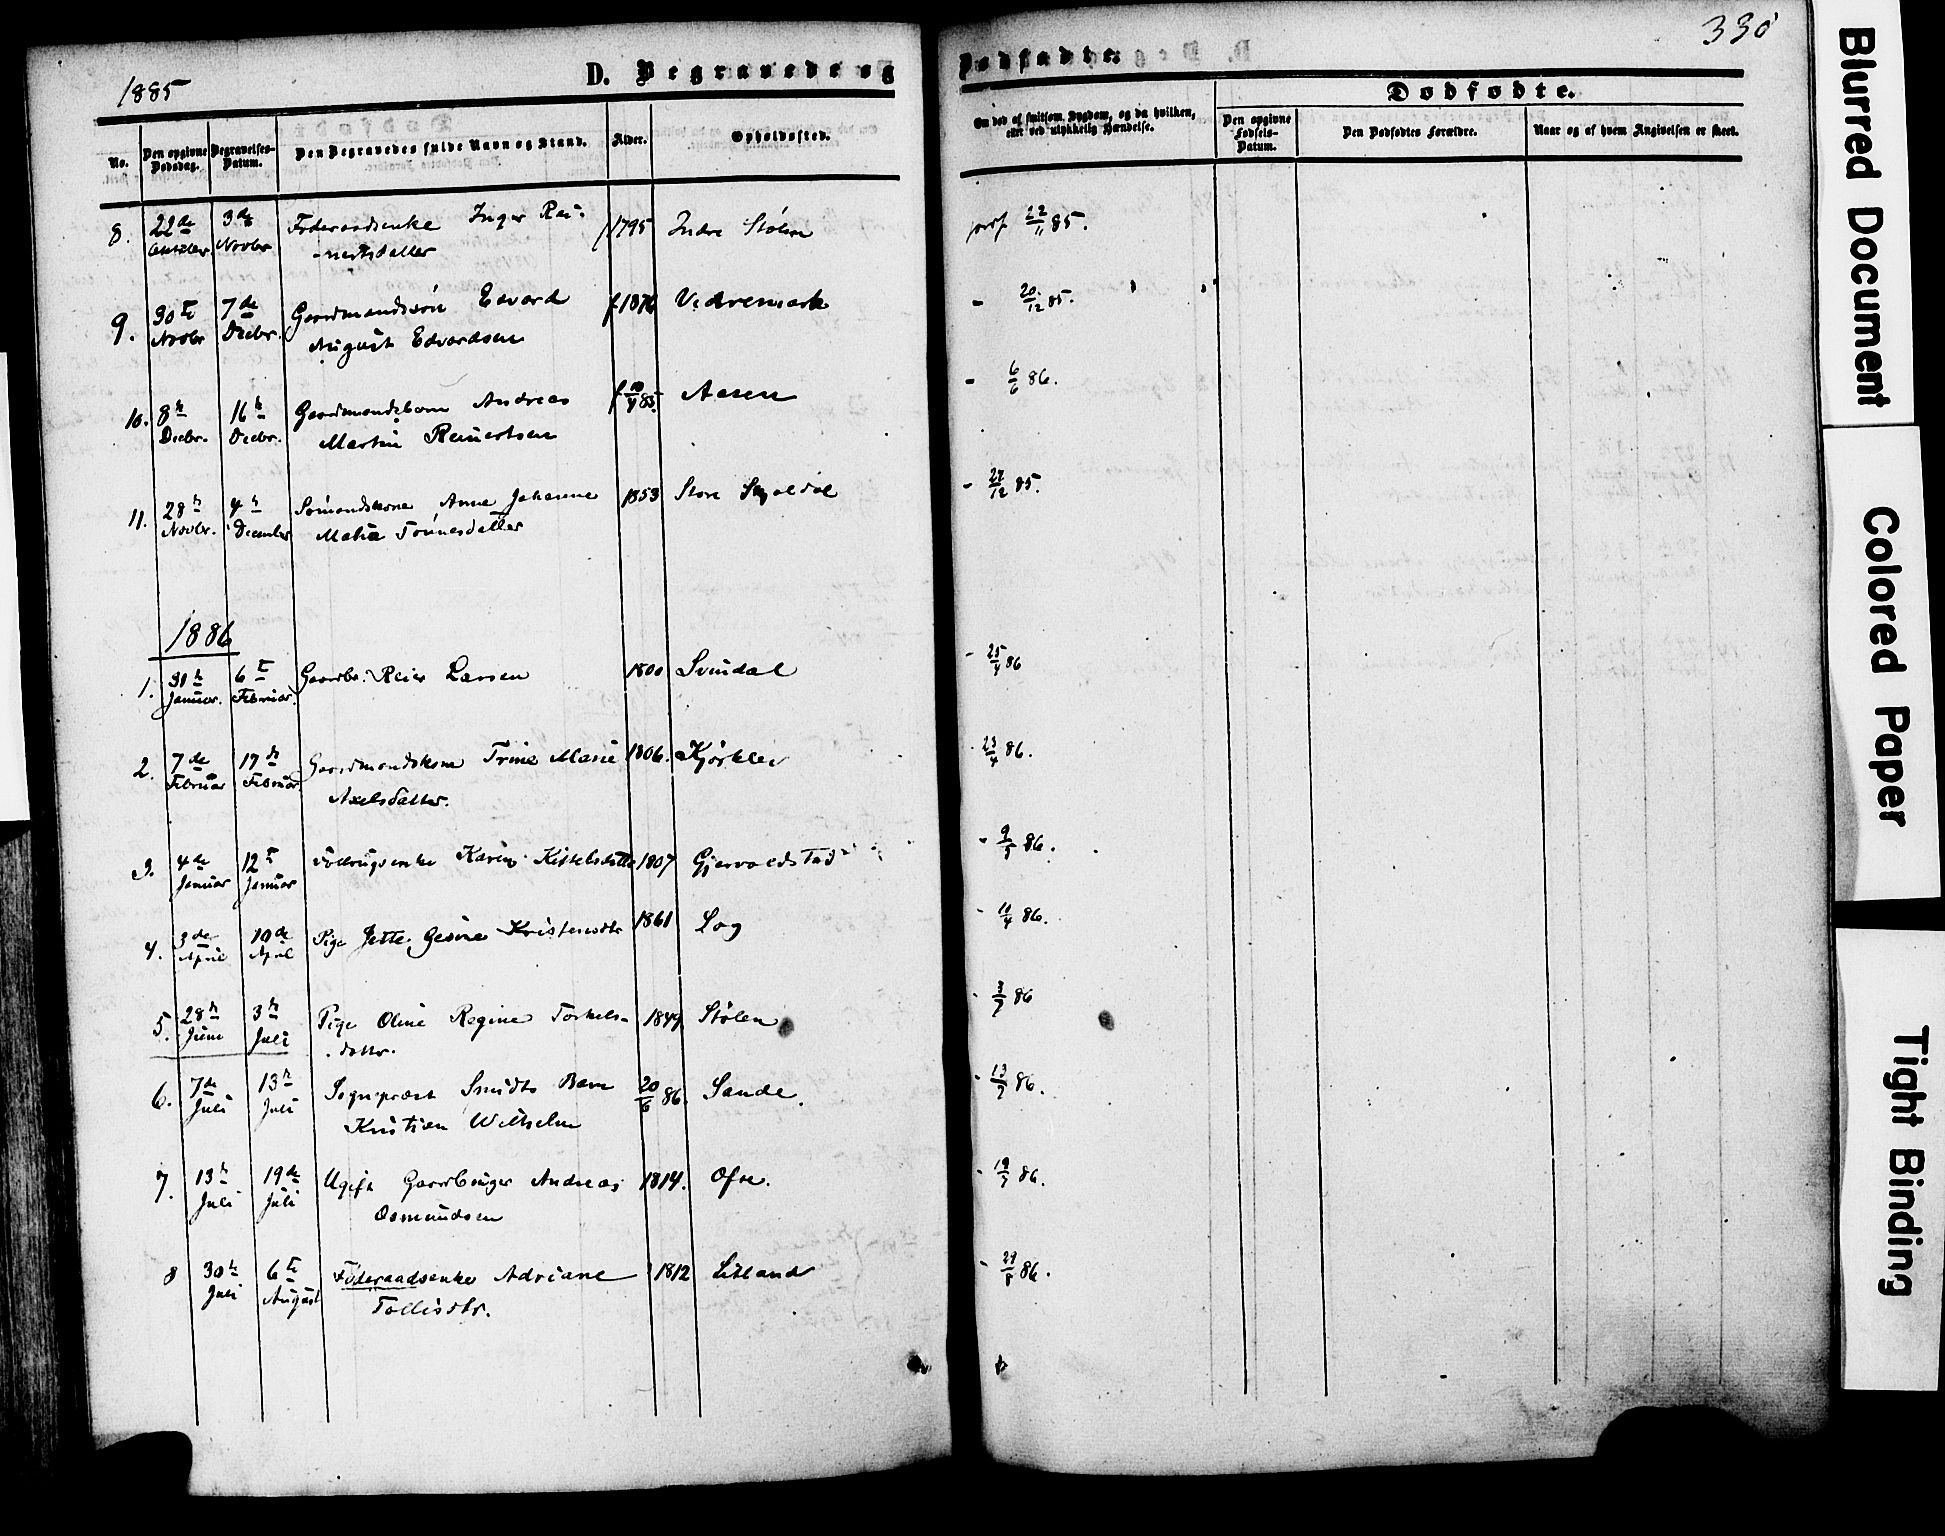 330
1885
D. Begravede og
Dødfødte.
No.
Den opgivne Dødsdag.
Begravelses-Datum.
Den Begravedes fulde Navn og Stand.
Alder.
Opholdssted.
Om død af smitsom Sygdom, og da hvilken, eller ved ulykkelig Hændelse.
Dødfødte.
Den opgivne Fødsels-Datum.
Den Dødfødtes Forældre.
Naar og af hvem Angivelsen er skeet.
8. 22de 3die Føderaadsenke Inger Rei- f 1795 Indre Stølen 22/11 85.
October Novbr -nertsdatter
9. 30te 7de Gaardmandssøn Edvard f 1876 Vedremark - 20/12 85.
Novbr Decbr. August Edvardsen
10. 8de 16de Gaardmandsbarn Andreas Aasen - 6/6 86.
Decbr. Decbr. Martin Reinertsen
11. 28de 4de Sømandskone Anne Johanne 1853 Store - 27/12 85.
Novbr. December Maria Tønnesdatter
1886
1. 31te 6te Gaardbr. Reier Larsen 1800 Svindal - 25/4 86
Januar. Februar.
2. 7de 17de Gaardmandskone Trine Marie 1806. Kjørklev - 23/4 86.
Februar Februar Axelsdatter.
3. 4de 12te Karen Kittelsdatter 1807 Gjervoldstad - 9/5 86.
Januar Januar
4. 3de 10de Pige Jette Gesine Kristensdtr 1861 Log - 11/4 86.
April April
5. 28de 3de Pige Oline Regine Torkels- 1844 Stølen - 3/7 86
Juni Juli datter.
6. 7de 13de Sognepræst Smidts Barn 20/6 86. Sande. - 13/7 86.
Juli Juli Kristian Wilhelm
7. 13de 19de Ugift Gaardbruger Andreas 1814. Ofte. - 19/7 86.
Juli Juli Osmundsen
8 30te 6te Føderaadsenke Adriane 1812 Litland - 29/8 86.
Juli August Tollisdtr.
Blurred Document
Colored Paper
Tight Binding